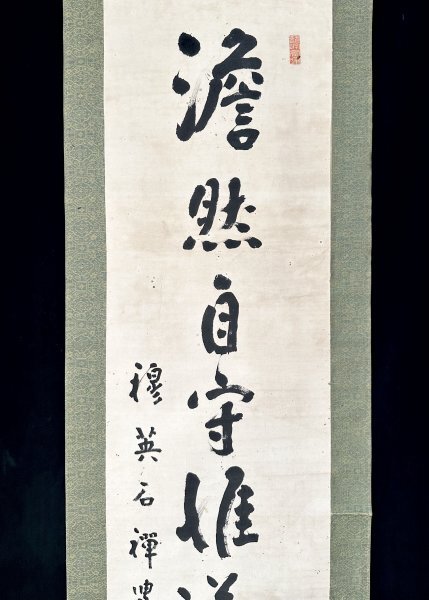 澹然自守惟
穆英石禪